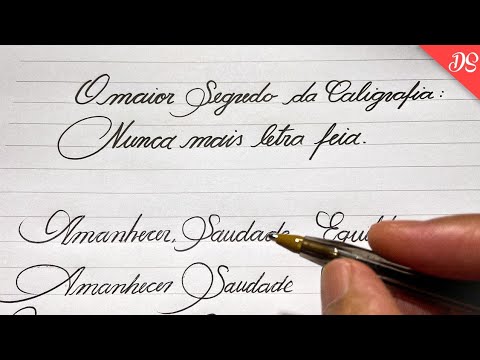 O maior Segredo da Caligrafia:
Nunca mais letra feia.
Amanhecer, Saudade
Amanhecer Saudade
DS